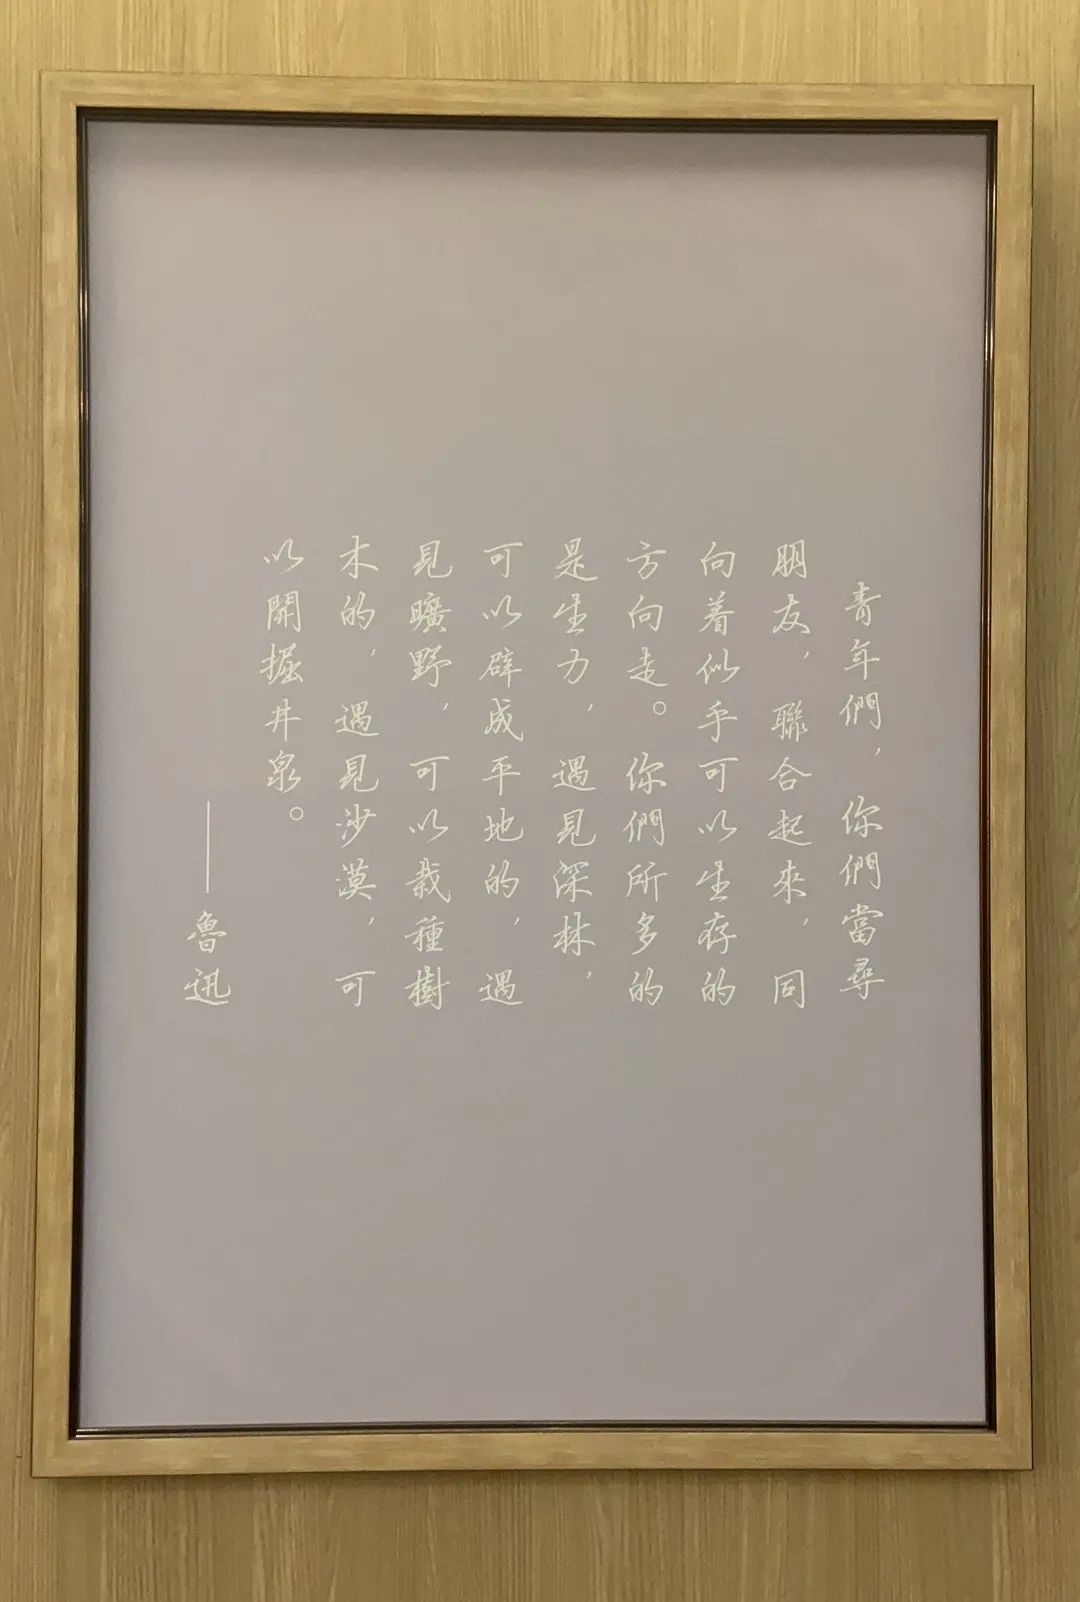 青年們，你們當尋
朋友，聯合起來，同
向着似乎可以生存的
方向走。你們所多的
是生力，遇見深林，
可以辟成平地的，遇
見曠野，可以栽種樹
木的，遇見沙漠，可
以開掘井泉。
——魯迅